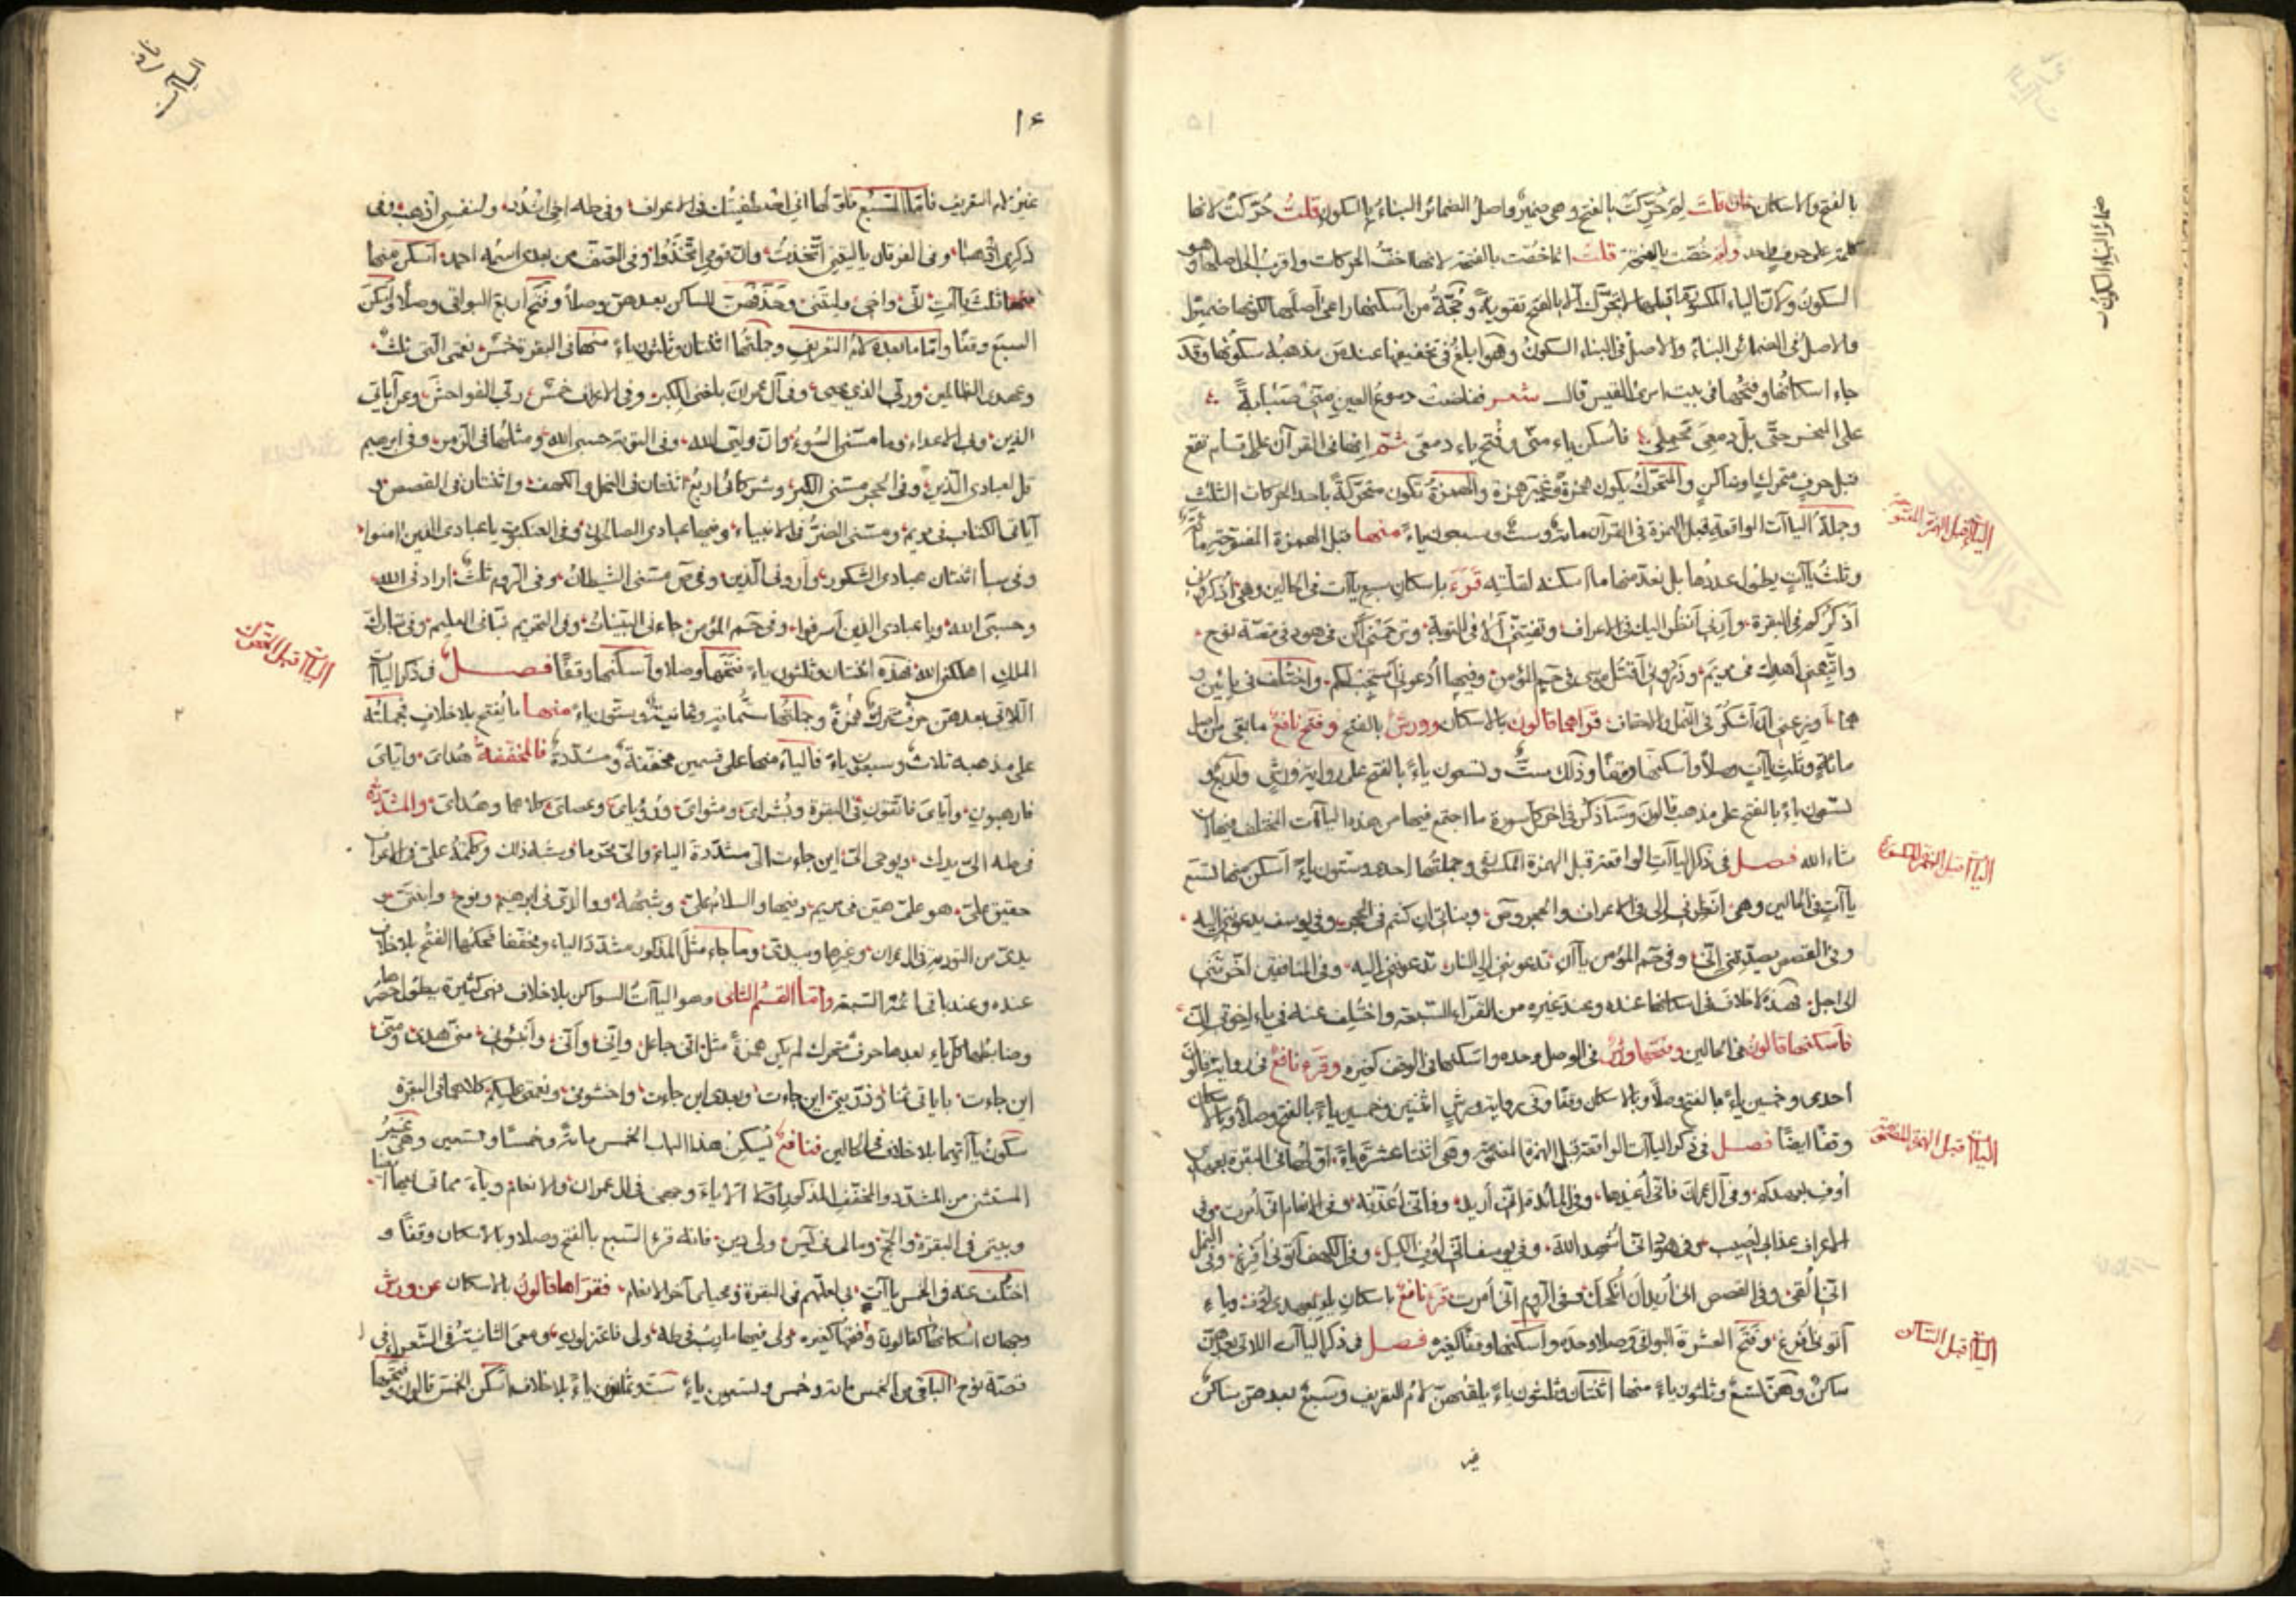 بالفتح والاسكان فان قلت لم حركت بالفتح وهي ضمير واصل الضمائر البناء بالسكون قلت حركت لانها
كلمة على حرف واحد ولم خصت بالفتحة قلت انما خصت بالفتحة لانها اخف الحركات واقرب الى اصلها وهو
السكون ولان الياء المكسور ما قبلها لا تحرك الا بالفتح تقوية وحجة من اسكنها راعى اصلها لكونها ضميرا
والاصل في الضمائر البناء والاصل في البناء السكون وهو ابلغ في تخفيفها عند من مذهبه سكونها وقد
جاء اسكانها وفتحها في بيت امرئ القيس قال شعر ففاضت دموع العين مني صبابة
على النحر حتى بل دمعي محملي فاسكن ياء مني وفتح ياء دمعي ثم انها في القرآن على اقسام تقع
قبل حرف متحرك او ساكن والمتحرك يكون همزة وغير همزة والهمزة تكون متحركة باحد الحركات الثلث
وجملة الياآت الواقعة قبل الهمزة في القرآن مائة وست وسبعون ياء منها قبل الهمزة المفتوحة مائة
وثلث ياآت يطول عددها بل نعد منها ما اسكنه لقلته قرء باسكان سبع ياآت في الحالين وهي
اذكركم في البقرة وارني انظر اليك في الاعراف وتفتني الا في التوبة وترحمني اكن في هود في قصة نوح
واتبعني اهدك في مريم وذروني اقتل موسى في حم المؤمن وفيها ادعوني استجب لكم واختلف في يائين
هما اوزعني ان اشكر في النمل والاحقاف قراهما قالون بالاسكان وورش بالفتح وفتح نافع ما بقي من
مائة وثلث ياآت وصلا واسكنها وقفا وذلك ست وتسعون ياء بالفتح على رواية ورش واربع و
تسعون ياء بالفتح على مذهب قالون وساذكر في اخر كل سورة ما اجتمع فيها من هذه الياآت المختلف فيها ان
شاء الله فصل في ذكر الياآت الواقعة قبل الهمزة المكسورة وجملتها احدى وستون ياء اسكن منها تسع
ياآت في الحالين وهي انظرني الى في الاعراف والحجر وص وبناتي ان كنتم في الحجر وفي يوسف يدعونني اليه
وفي القصص يصدقني اني وفي حم المؤمن ياآن تدعونني الى النار تدعونني اليه وفي المنافقين اخرتني
الى اجل فهذه لا خلاف في اسكانها عنده وعند غيره من القراء السبعة واختلف عنه في ياء اخوتي ان
فاسكنها قالون في الحالين وفتحها ورش في الوصل وحده واسكنها في الوقف كغيره وقرء نافع في رواية قالون
احدى وخمسين ياء بالفتح وصلا وبالاسكان وقفا وفي رواية ورش اثنتين وخمسين ياء بالفتح وصلا وبالاسكان
وقفا ايضا فصل في ذكر الياآت الواقعة قبل الهمزة المضمومة وهي اثنتا عشرة ياء اولها في البقرة بعهدي
اوف بعهدكم وفي آل عمران فاني اعيذها وفي المائدة اني اريد وفاني اعذبه وفي الانعام اني امرت وفي
الاعراف عذابي اصيب وفي هود اني اشهد الله وفي يوسف اني اوفي الكيل وفي الكهف آتوني افرغ وفي النمل
اني القي وفي القصص اني اريد ان انكحك وفي الزمر اني امرت قرء نافع باسكان ياء بعهدي اوف وياء
آتوني افرغ وفتح العشرة البواقي وصلا وحده واسكنها وقفا كغيره فصل في ذكر الياآت اللاتي بعدهن
ساكن وهن تسع وثلثون ياء منها اثنتان وثلثون ياء يلقيهن لام التعريف وسبع بعدهن ساكن
غير
ضمائر البناء السكون
الياآت قبل الهمزة المفتوحة
الياآت قبل الهمزة المكسورة
الياآت قبل الهمزة المضمومة
الياآت قبل الساكن
١٦
غير لام التعريف فاما السبع فاولها اني اصطفيتك في الاعراف وفي طه اخي اشدد ولنفسي اذهب وفي
ذكري اذهبا وفي الفرقان ياليتني اتخذت وان قومي اتخذوا وفي الصف من بعدي اسمه احمد اسكن منها
ثلث ياآت اني واخي وليتني وحذفت للساكن بعدهن وصلا وفتح اربع البواقي وصلا واسكن
السبع وقفا واما ما بعده لام التعريف وجملتها اثنتان وثلثون ياء منها في البقرة خمس نعمتي التي ثلث
وعهدي الظالمين وربي الذي يحيي وفي آل عمران بلغني الكبر وفي الاعراف خمس ربي الفواحش وعن آياتي
الذين وبي الاعداء وما مسني السوء وان وليي الله وفي التوبة حسبي الله ومثلها في الزمر وفي ابرهيم
قل لعبادي الذين وفي الحجر مسني الكبر وشركائي اربع اثنتان في النحل والكهف واثنتان في القصص و
آتاني الكتاب في مريم ومسني الضر في الانبياء وفيها عبادي الصالحون وفي العنكبوت ياعبادي الذين امنوا
وفي سبأ اثنتان عبادي الشكور واروني الذين وفي ص مسني الشيطان وفي الزمر ثلث ارادني الله
وحسبي الله وياعبادي الذين اسرفوا وفي حم المؤمن جاءني البينات وفي التحريم نبأني العليم وفي تبارك
الملك اهلكني الله فهذه اثنتان وثلثون ياء فتحها وصلا واسكنها وقفا فصل في ذكر الياآت
اللاتي بعدهن حرف متحرك غير همزة وجملتها ستمائة وثمانية وستون ياء منها ما يفتح بلا خلاف فجملته
على مذهبه ثلاث وسبعون ياء فالياء منها على قسمين مخففة ومشددة فالمخففة هداي واياي
فارهبون واياي فاتقون في البقرة وبشراي ومثواي ورؤياي وعصاي كلاهما وهداي والمشددة
في طه الى يدك ويوحى الي اين جاءت الي مشددة الياء والي محرما وشبه ذلك وكلمة علي في الاعراف
حقيق علي هو علي هين في مريم وفيها والسلام علي وشبهه ووالدي في ابرهيم ونوح وابنتي و
يدي من التورية في آل عمران وغيرها وبيدي وما جاء مثل المذكور مشدد الياء ومخففا فحكمها الفتح بلا خلاف
عنده وعند باقي ائمة السبعة واما القسم الثاني وهو الياآت السواكن بلا خلاف فهي كثيرة يطول حصرها
وضابطها كل ياء بعدها حرف متحرك لم يكن همزة مثل اني جاعل واني واني وانبئوني مني هدى ومني
اين جاءت باياتي ثمنا وذريتي اين جاءت وبعدي اين جاءت واخشوني ونعمتي عليكم كلاهما في البقرة
سكون ياآتهما بلا خلاف في الحالين فنافع يسكن هذا الباب الخمس مائة وخمسا وتسعين وهي غير
المستثنى من المشدد والمخفف المذكورات الا ياء وجهي في آل عمران والانعام وياء مماتي فيها ايضا
وبيتي في البقرة والحج ومالي في يس ولي دين فانه قرء السبع بالفتح وصلا وبالاسكان وقفا و
اختلف عنه في الخمس ياآت بي لعلهم في البقرة ومحياي آخر الانعام فقراها قالون بالاسكان عن ورش
وجهان اسكانها كقالون وفتحها كغيره ولي فيها مارب في طه ولي فاعتزلون ومعي الثانية في الشعراء في
قصة نوح الباقي من الخمس مائة وخمس وتسعون ياء ست وثلثون ياء بلا خلاف اسكن الخمس قالون وفتحها
الياآت قبل المتحرك